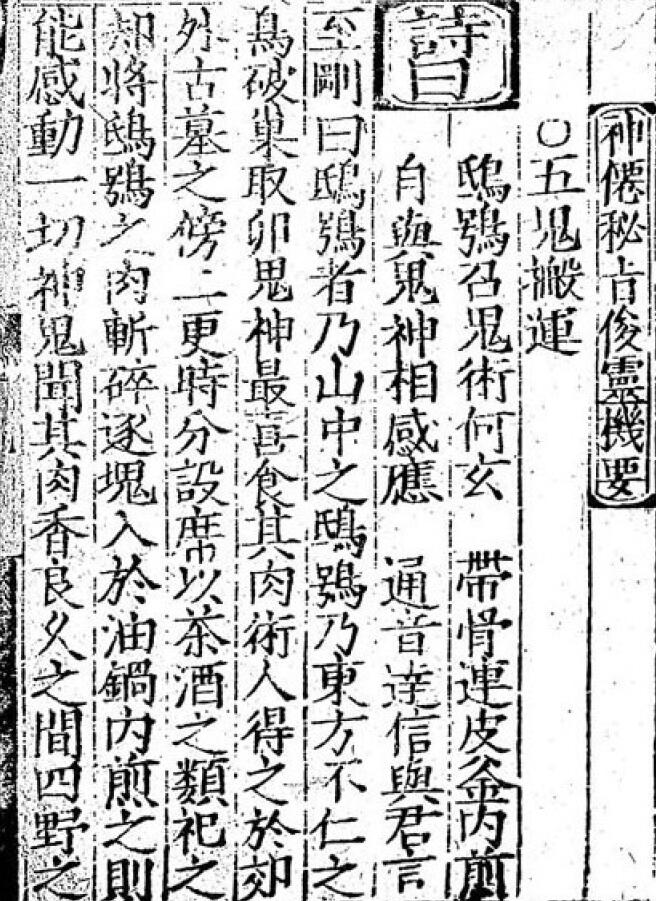 神僊秘旨俊靈機要
○五鬼搬運
鴟鴞召鬼術何玄　帶骨連皮釜內煎
詩曰
自與鬼神相感應　通音達信與君言
至剛曰鴟鴞者乃山中之鴟鴞乃東方不仁之
鳥破巢取卵鬼神最喜食其肉術人得之於郊
外古墓之傍二更時分設席以茶酒之類祀之
却將鴟鴞之肉斬碎逐塊入於油鍋內煎之則
能感動一切神鬼聞其肉香良久之間四野之